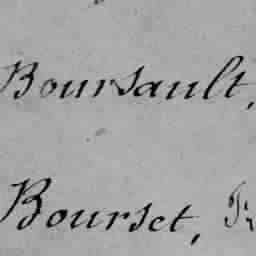 Boursault,
Bourset,